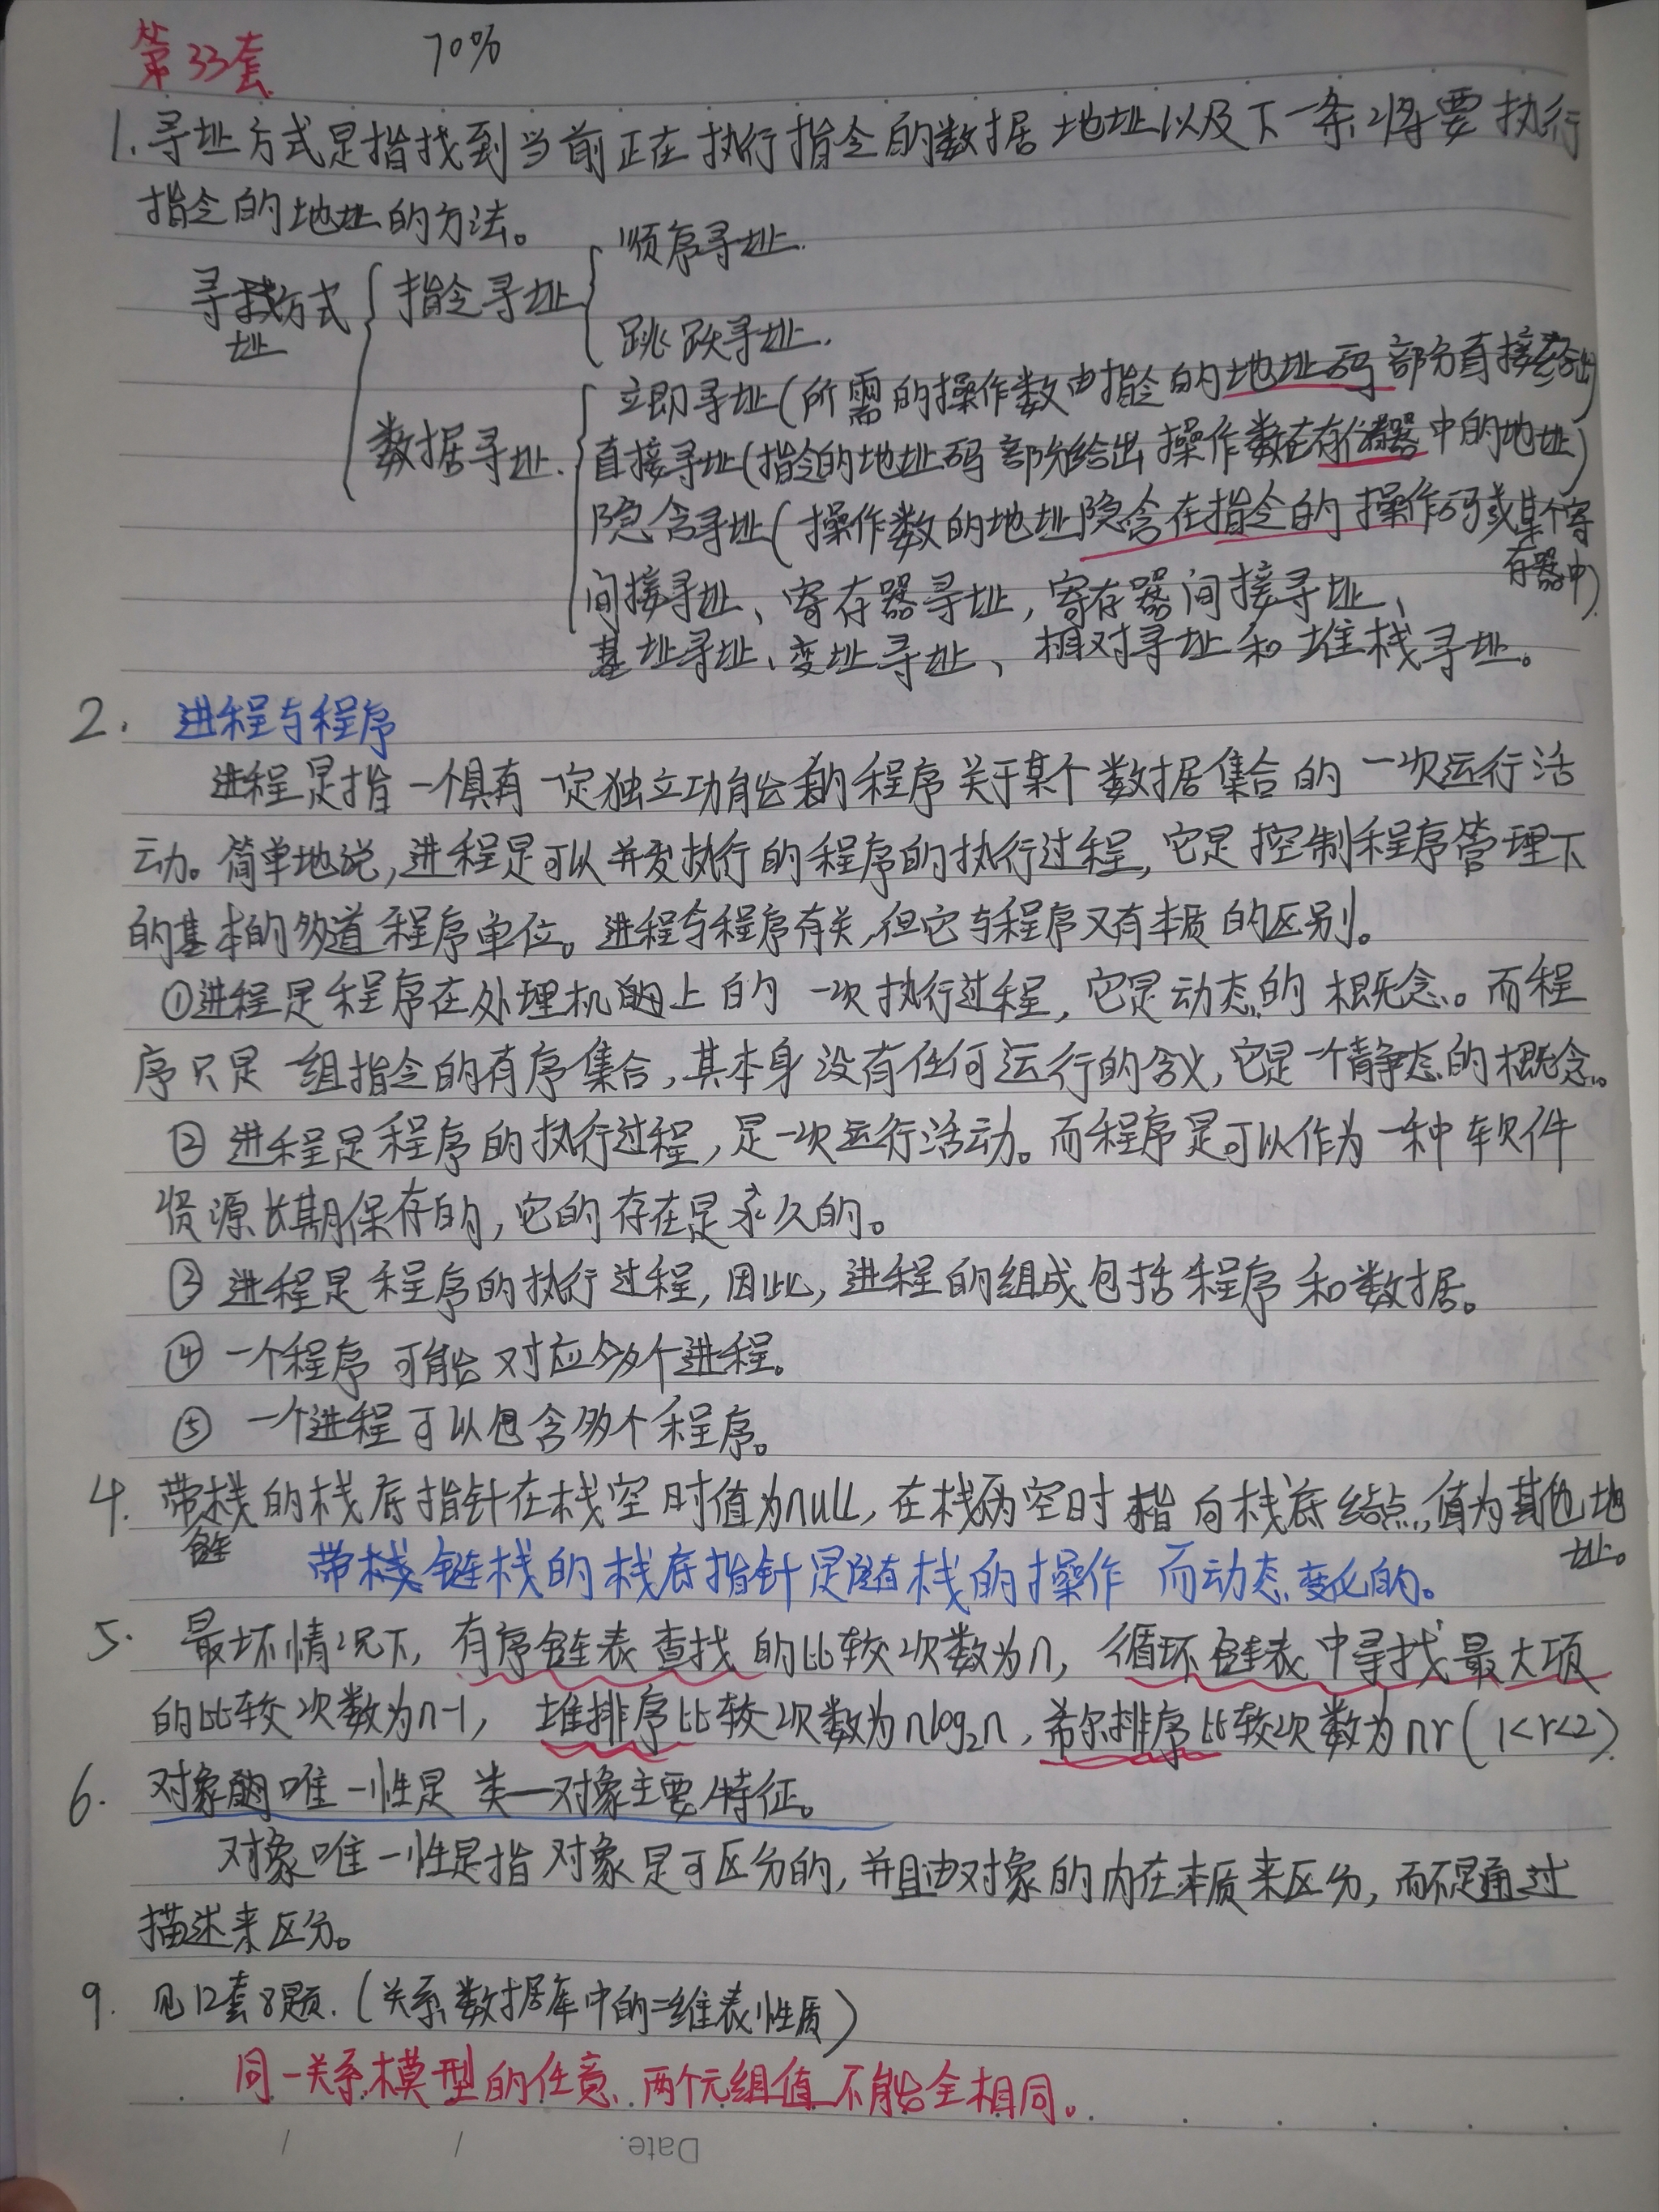 第33套 70%
1. 寻址方式是指找到当前正在执行指令的数据地址以及下一条将要执行
指令的地址的方法。
顺序寻址.
寻址方式 指令寻址
跳跃寻址.
立即寻址(所需的操作数由指令的地址码部分直接给出)
数据寻址. 直接寻址(指令的地址码部分给出操作数在存储器中的地址)
隐含寻址(操作数的地址隐含在指令的操作码或某个寄
存器中).
间接寻址、寄存器寻址,寄存器间接寻址、
基址寻址、变址寻址、相对寻址和堆栈寻址。
2. 进程与程序
进程是指一个具有一定独立功能的程序关于某个数据集合的一次运行活
动。简单地说,进程是可以并发执行的程序的执行过程,它是控制程序管理下
的基本的多道程序单位。进程与程序有关,但它与程序又有本质的区别。
①进程是程序在处理机上的一次执行过程,它是动态的概念。而程
序只是一组指令的有序集合,其本身没有任何运行的含义,它是一个静态的概念。
② 进程是程序的执行过程,是一次运行活动。而程序是可以作为一种软件
资源长期保存的,它的存在是永久的。
③ 进程是程序的执行过程,因此,进程的组成包括程序和数据。
④ 一个程序可能对应多个进程。
⑤ 一个进程可以包含多个程序。
4. 带链栈的栈底指针在栈空时值为null,在栈非空时指向栈底结点,值为其他地
址。
带链栈的栈底指针是随栈的操作而动态变化的。
5. 最坏情况下,有序链表查找的比较次数为n,循环链表中寻找最大项
的比较次数为n-1, 堆排序比较次数为nlog₂n,希尔排序比较次数为nr(1<r<2).
6. 对象的唯一性是类—对象主要特征。
对象唯一性是指对象是可区分的,并且由对象的内在本质来区分,而不是通过
描述来区分。
9. 见12套8题.(关系数据库中的二维表性质)
同一关系模型的任意两个元组值不能全相同。
Date.